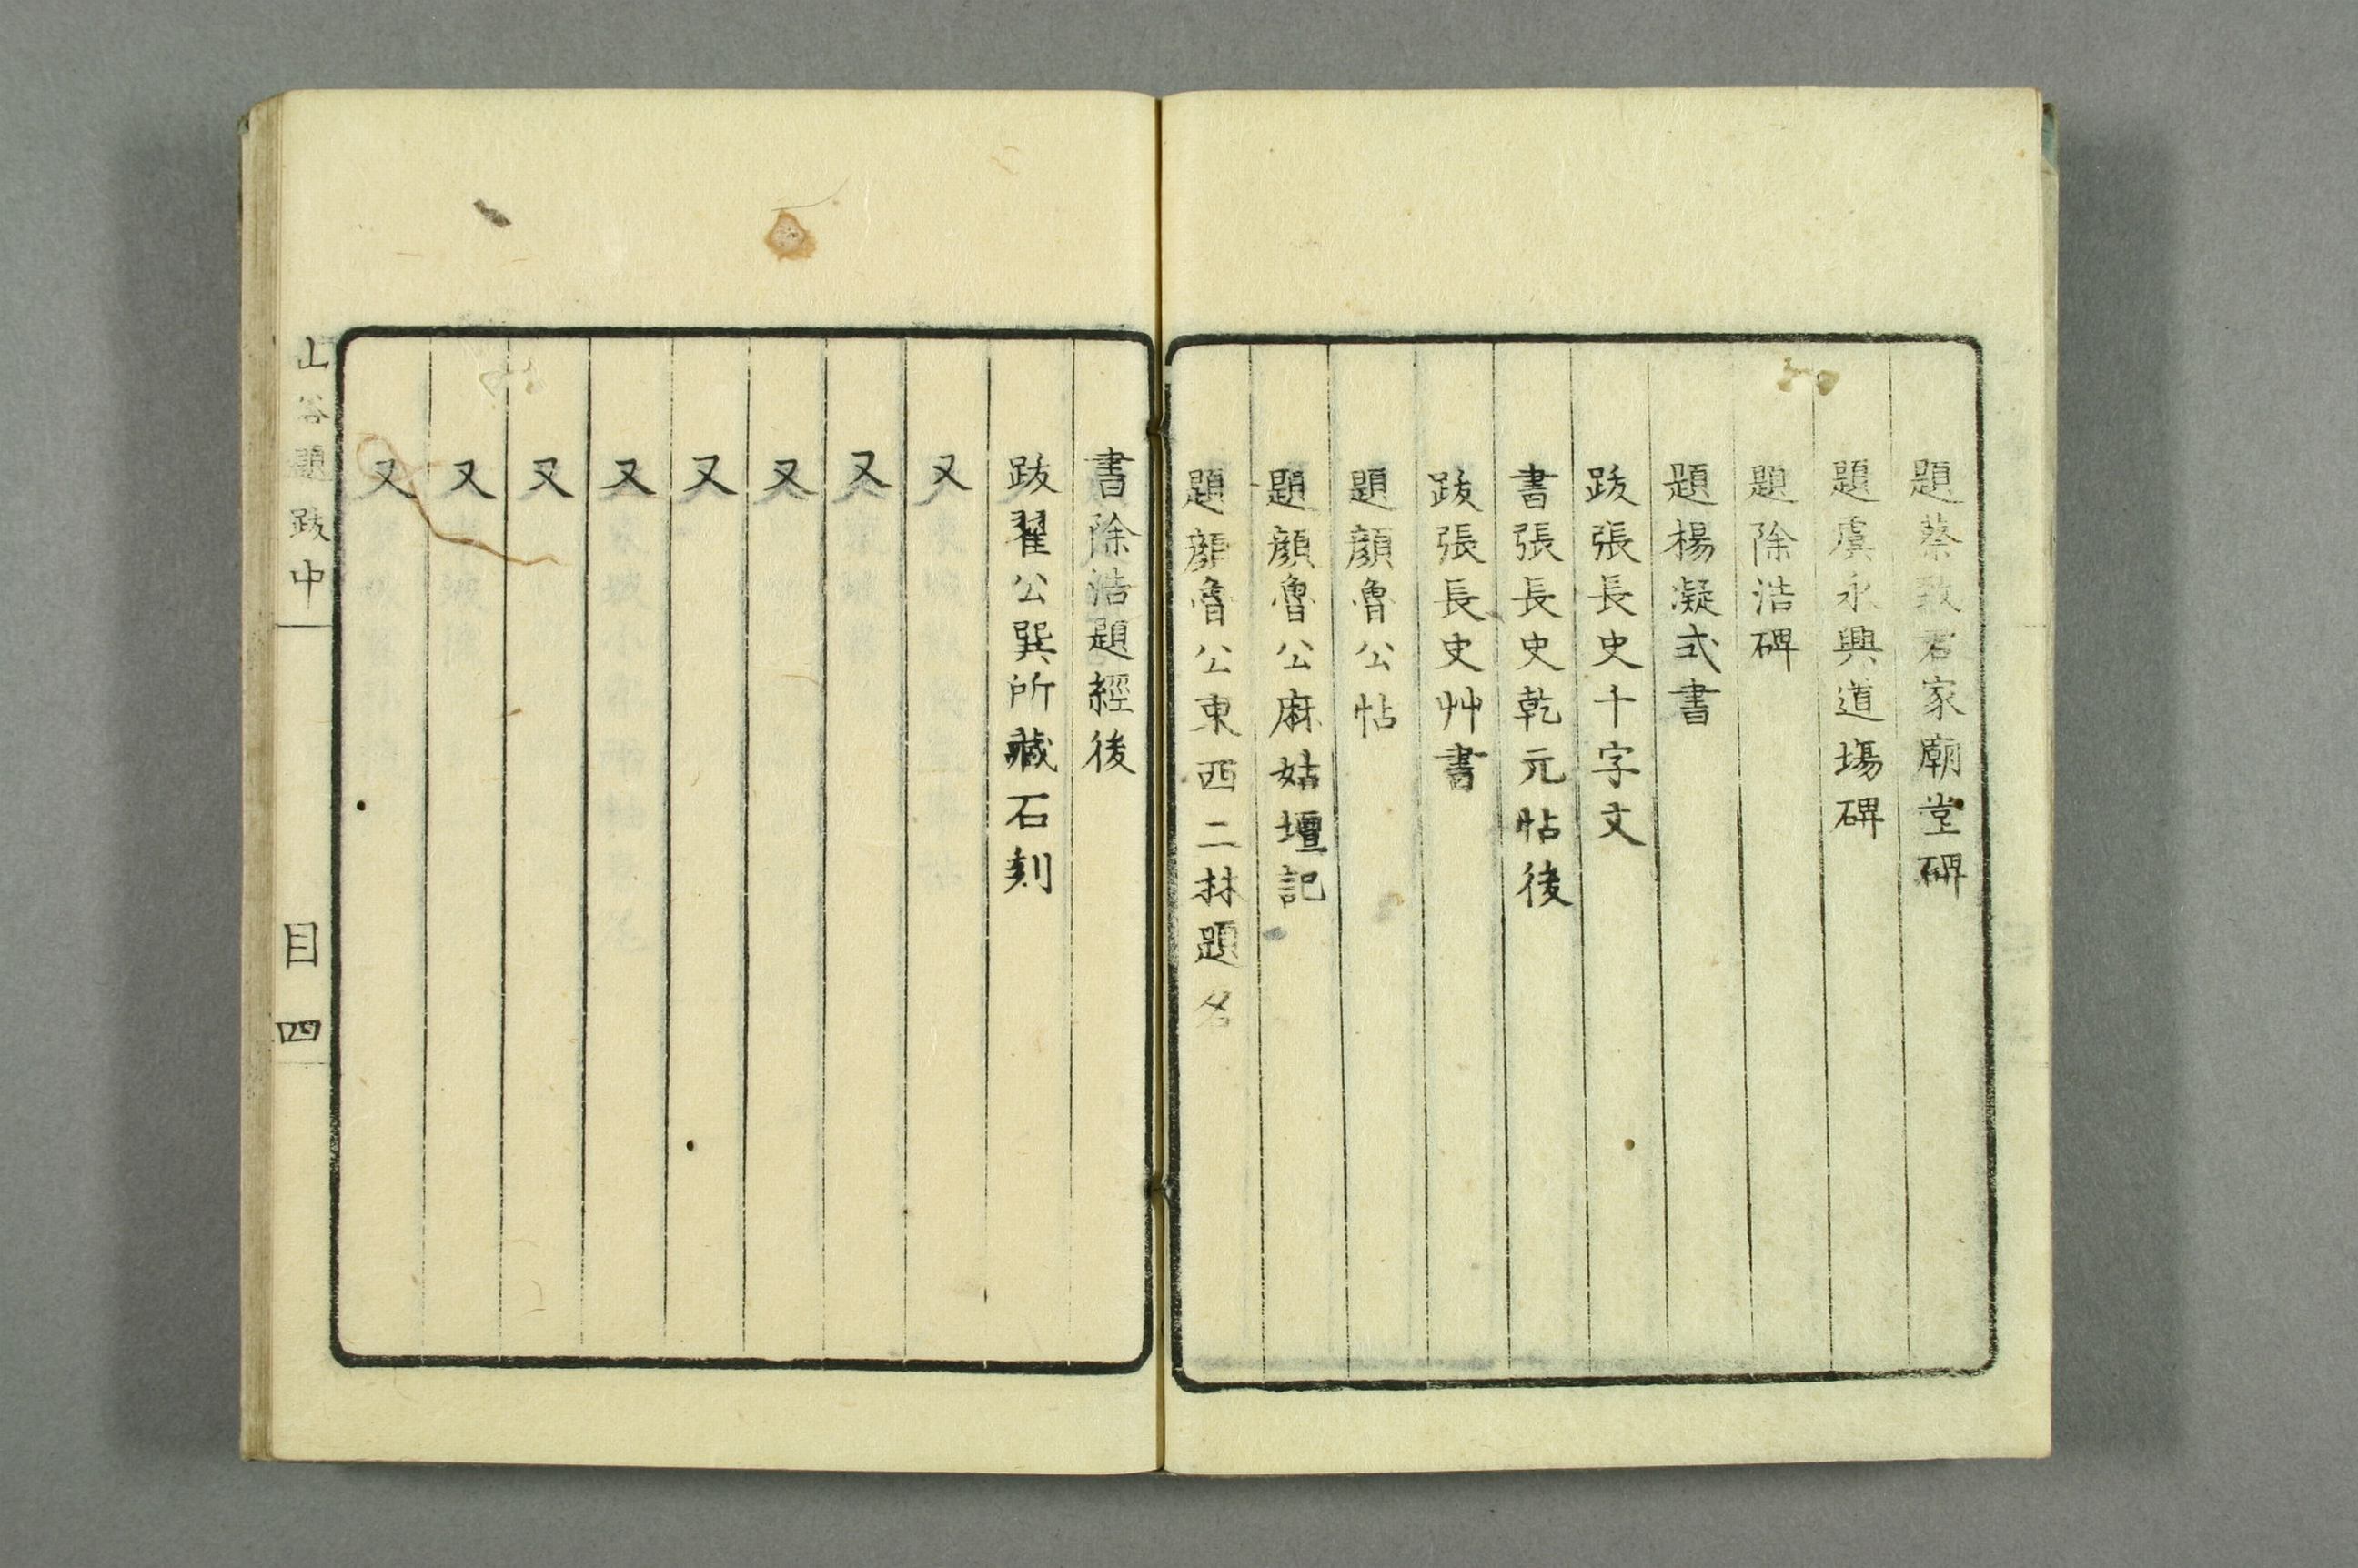 題蔡致君家廟堂碑
題虞永興道場碑
題除浩碑
題楊凝式書
跋張長史千字文
書張長史乾元帖後
跋張長史艸書
題顔魯公帖
題顔魯公麻姑壇記
題顔魯公東西二林題名
書除浩題經後
跋翟公巽所藏石刻
又
又
又
又
又
又
又
又
山谷題跋中
目四